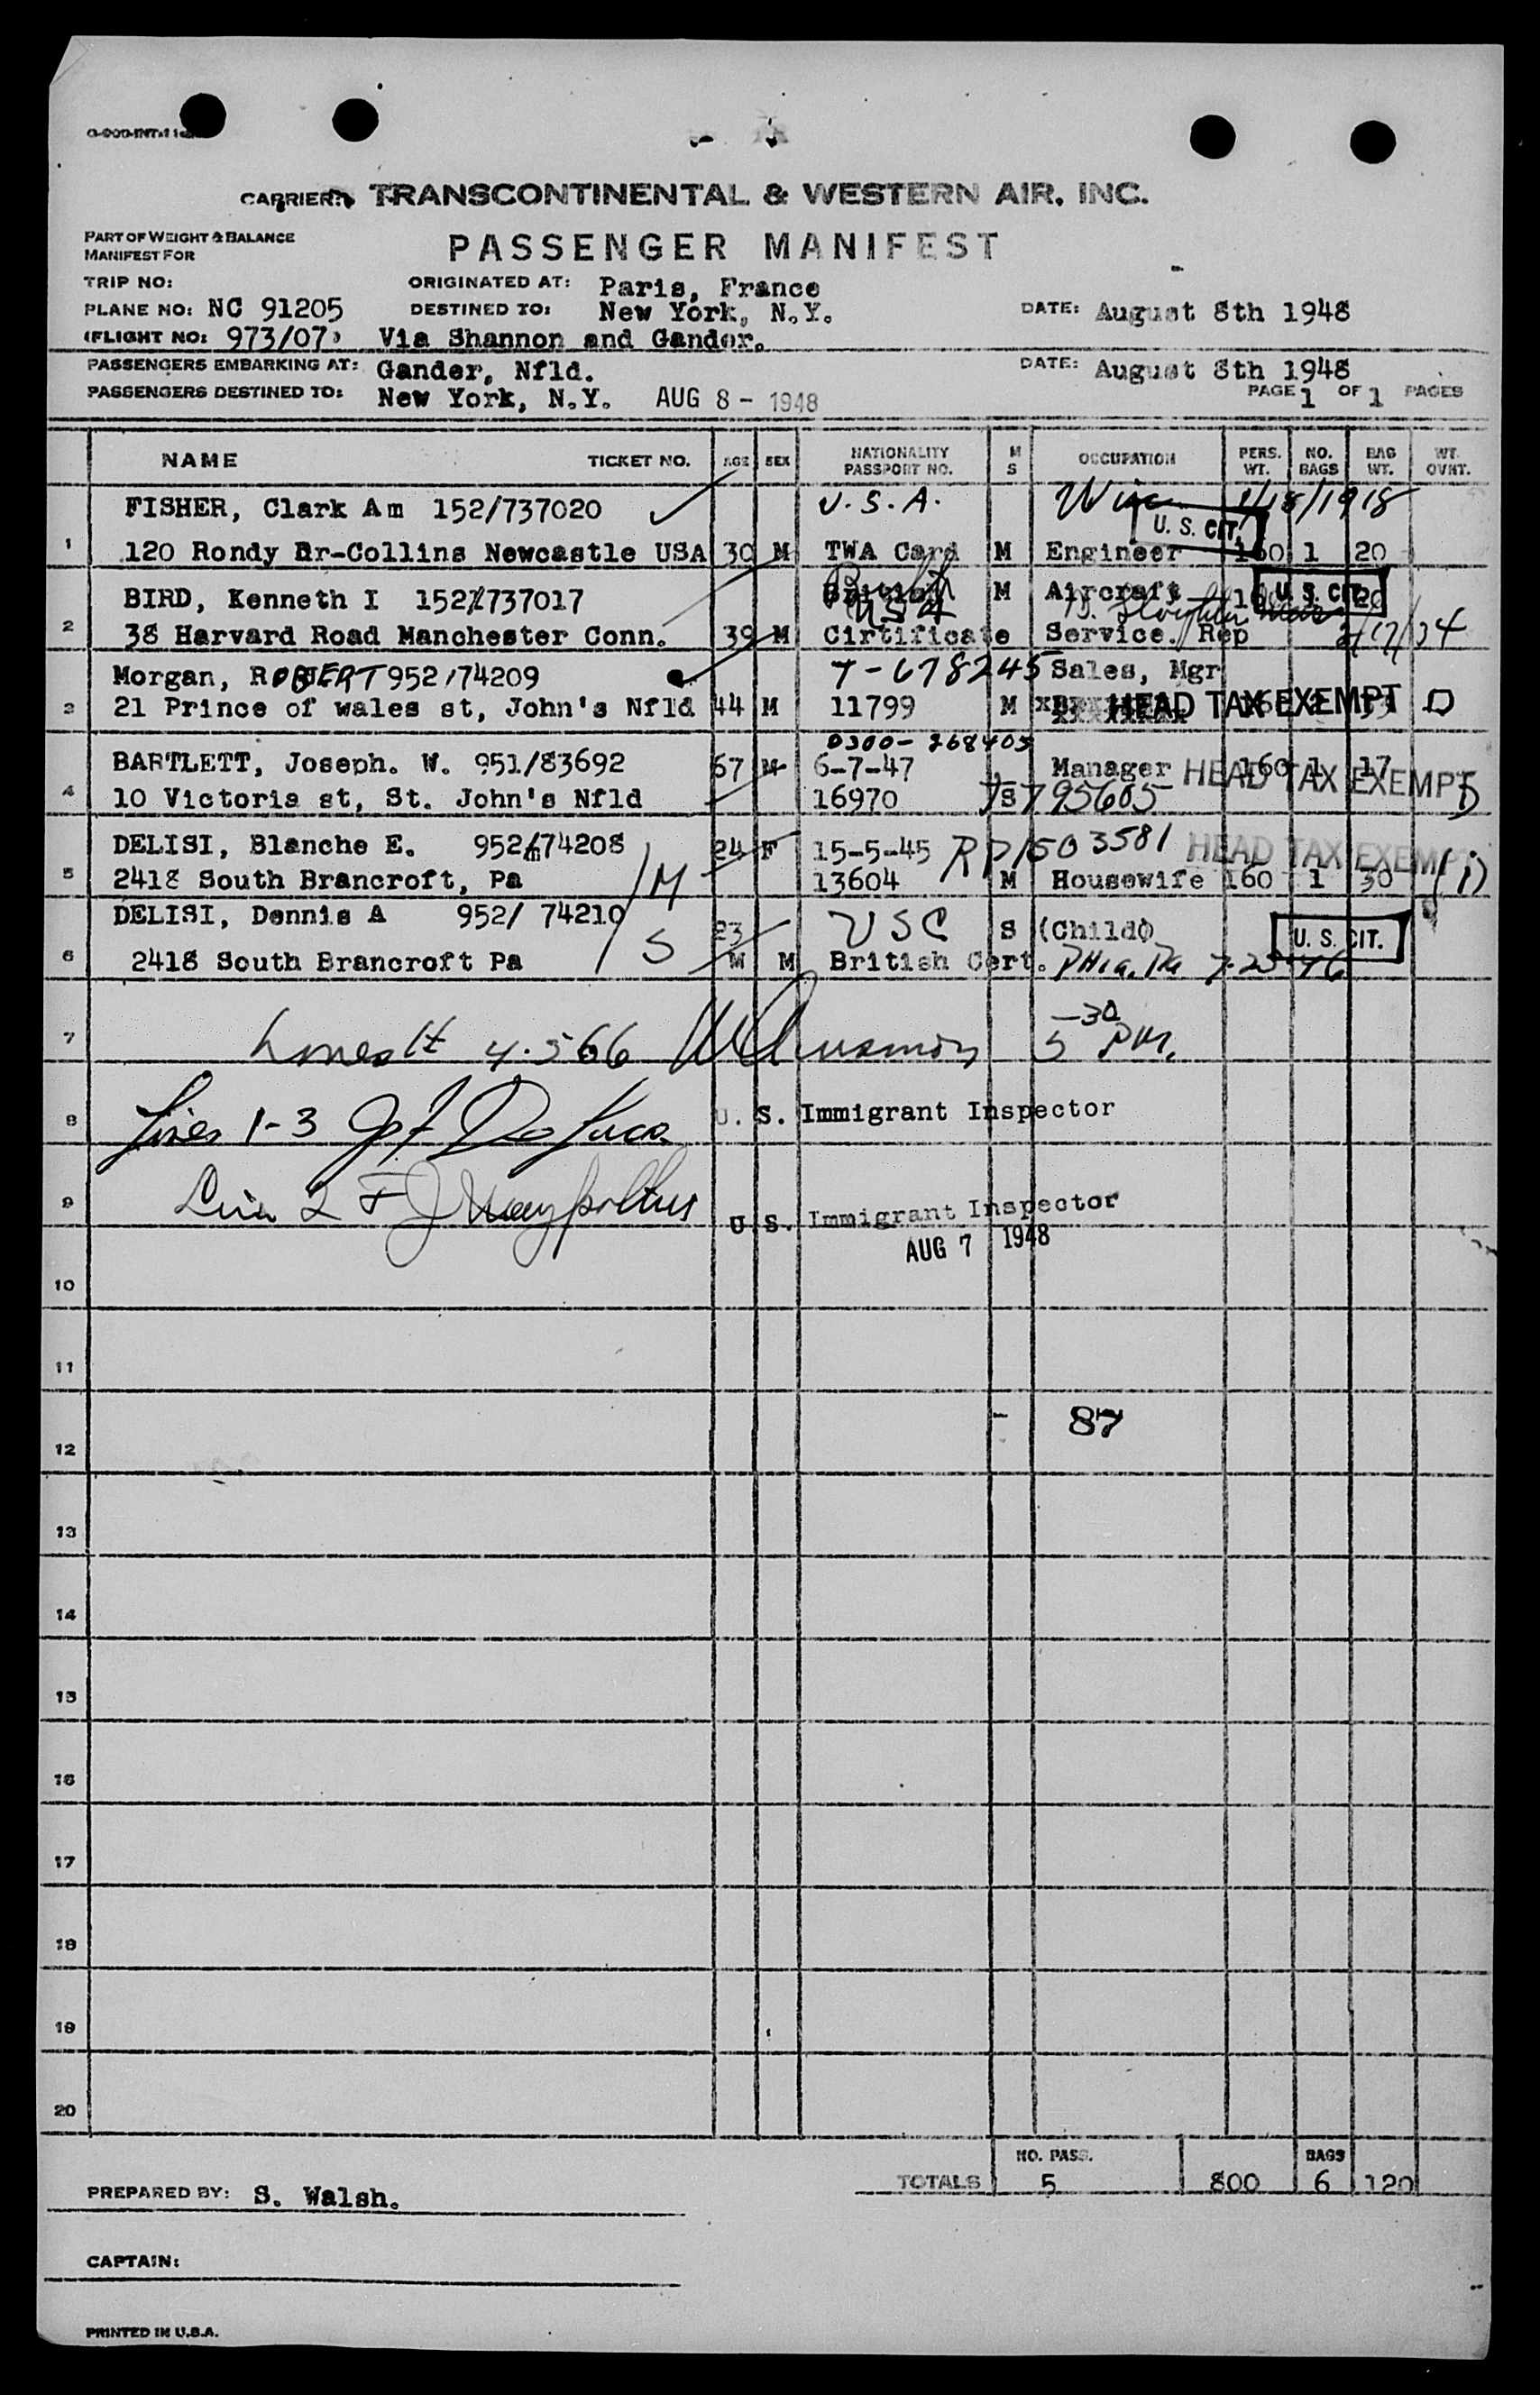 CARRIER: TRANSCONTINENTAL & WESTERN AIR, INC.
PART OF WEIGHT & BALANCE
MANIFEST FOR
PASSENGER MANIFEST
TRIP NO:
ORIGINATED AT: Paris, France
PLANE NO: NC 91205 DESTINED TO: New York, N.Y. DATE: August 8th 1948
(FLIGHT NO: 973/07) Via Shannon and Gander.
PASSENGERS EMBARKING AT: Gander, Nfld. DATE: August 8th 1948
PASSENGERS DESTINED TO: New York, N.Y. AUG 8 - 1948 PAGE 1 OF 1 PAGES
NAME TICKET NO. AGE SEX NATIONALITY PASSPORT NO. M S OCCUPATION PERS. WT. NO. BAGS BAG WT. WT. OVNT.
FISHER, Clark Am 152/737020 U.S.A. 1/18/1918
U. S. CIT.
1 120 Rondy Dr-Collins Newcastle USA 30 M TWA Card M Engineer 160 1 20
BIRD, Kenneth I 152/737017 British M Aircraft U. S. CIT. 20
USA
2 38 Harvard Road Manchester Conn. 39 M Cirtificate Service. Rep
Morgan, ROBERT 952/74209 T-678245 Sales, Mgr
3 21 Prince of wales st, John's Nfld 44 M 11799 M HEAD TAX EXEMPT
0300-268405
BARTLETT, Joseph. W. 951/83692 67 M 6-7-47 Manager 160 1 17
HEAD TAX EXEMPT
4 10 Victoria st, St. John's Nfld 16970 S 795605
DELISI, Blanche E. 952/74208 24 F 15-5-45 RP 1503581 HEAD TAX EXEMPT
5 2418 South Brancroft, Pa M 13604 M Housewife 160 1 30 (1)
DELISI, Dennis A 952/ 74210 23 USC S (Child)
U. S. CIT.
6 2418 South Brancroft Pa S M M British Cert. Phia. Pa 7-25-46
7 4.566 5-30 PM.
8 Lines 1-3 U. S. Immigrant Inspector
9 Line 2 U. S. Immigrant Inspector
AUG 7 1948
10
11
87
12
13
14
15
16
17
18
19
20
NO. PASS. BAGS
TOTALS 5 800 6 120
PREPARED BY: S. Walsh.
CAPTAIN:
PRINTED IN U.S.A.